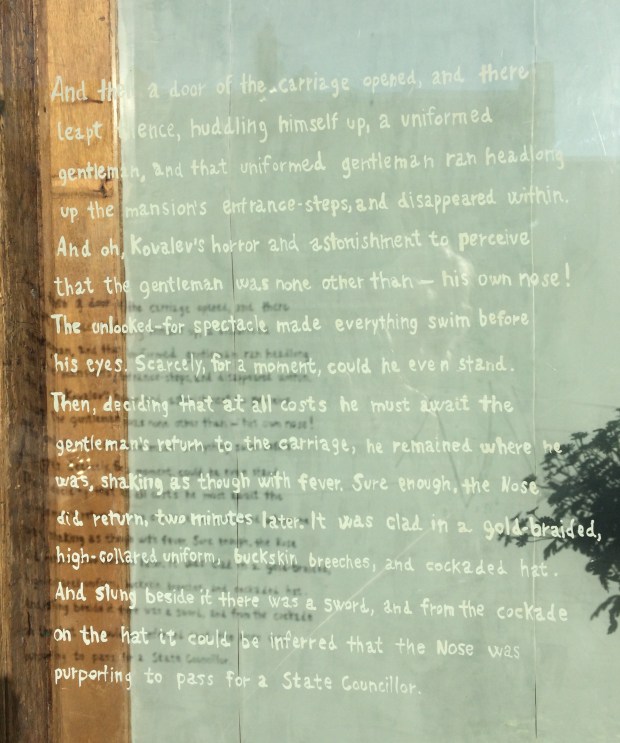 And then a door of the carriage opened, and there
leapt thence, huddling himself up, a uniformed
gentleman, and that uniformed gentleman ran headlong
up the mansion's entrance-steps, and disappeared within.
And oh, Kovalev's horror and astonishment to perceive
that the gentleman was none other than — his own nose!
The unlooked-for spectacle made everything swim before
his eyes. Scarcely, for a moment, could he even stand.
Then, deciding that at all costs he must await the
gentleman's return to the carriage, he remained where he
was, shaking as though with fever. Sure enough, the Nose
did return, two minutes later. It was clad in a gold-braided,
high-collared uniform, buckskin breeches, and cockaded hat.
And slung beside it there was a sword, and from the cockade
on the hat it could be inferred that the Nose was
purporting to pass for a State Councillor.